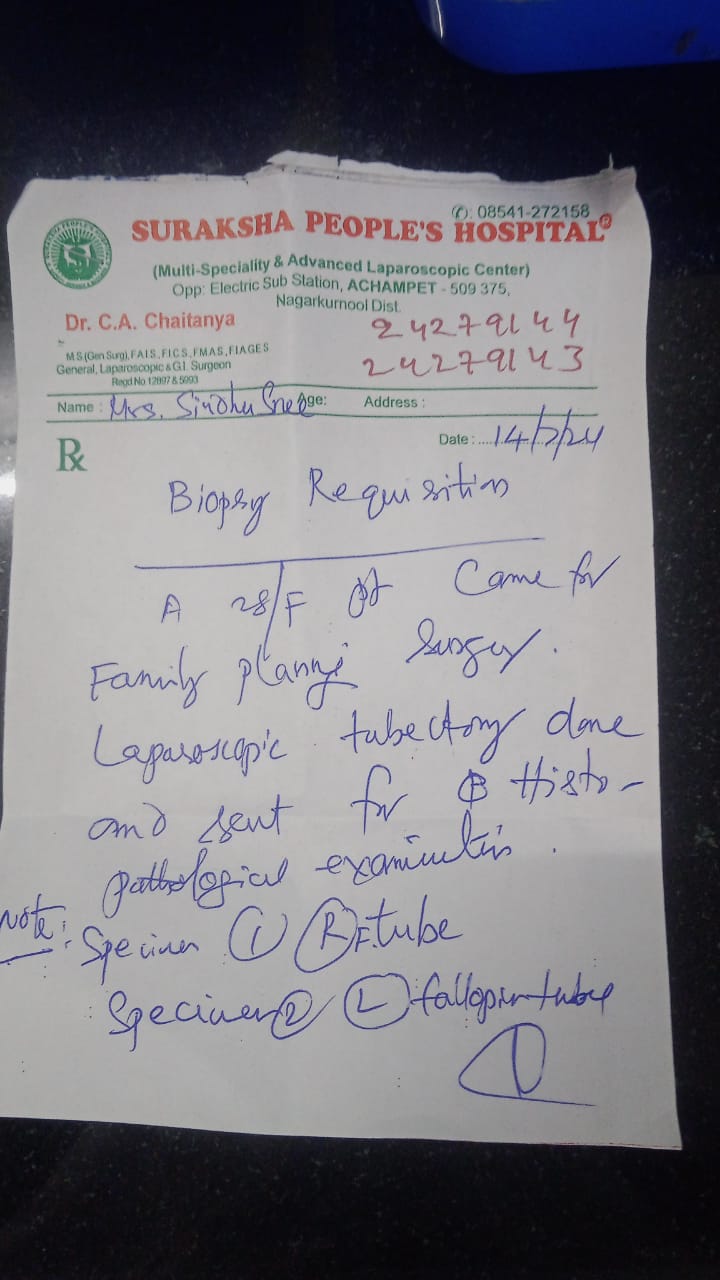 ✆: 08541-272158
SURAKSHA PEOPLE'S HOSPITAL®
(Multi-Speciality & Advanced Laparoscopic Center)
Opp: Electric Sub Station, ACHAMPET - 509 375,
Nagarkurnool Dist.
Dr. C.A. Chaitanya
M.S (Gen Surg), F.A.I.S., F.I.C.S., FMAS, FIAGES
General, Laparoscopic & G.I. Surgeon
Regd No 12897 & 5993
24279144
24279143
Name : Mrs. Sindhu Sree Age: Address :
Rx
Date : .... 14/7/24
Biopsy Requisition
A 28/F pt Came for
Family planning Surgery.
Laparoscopic tubectomy done
and sent for Histo-
pathological examination.
Note: Specimen 1 R F.tube
Specimen 2 L fallopian tube